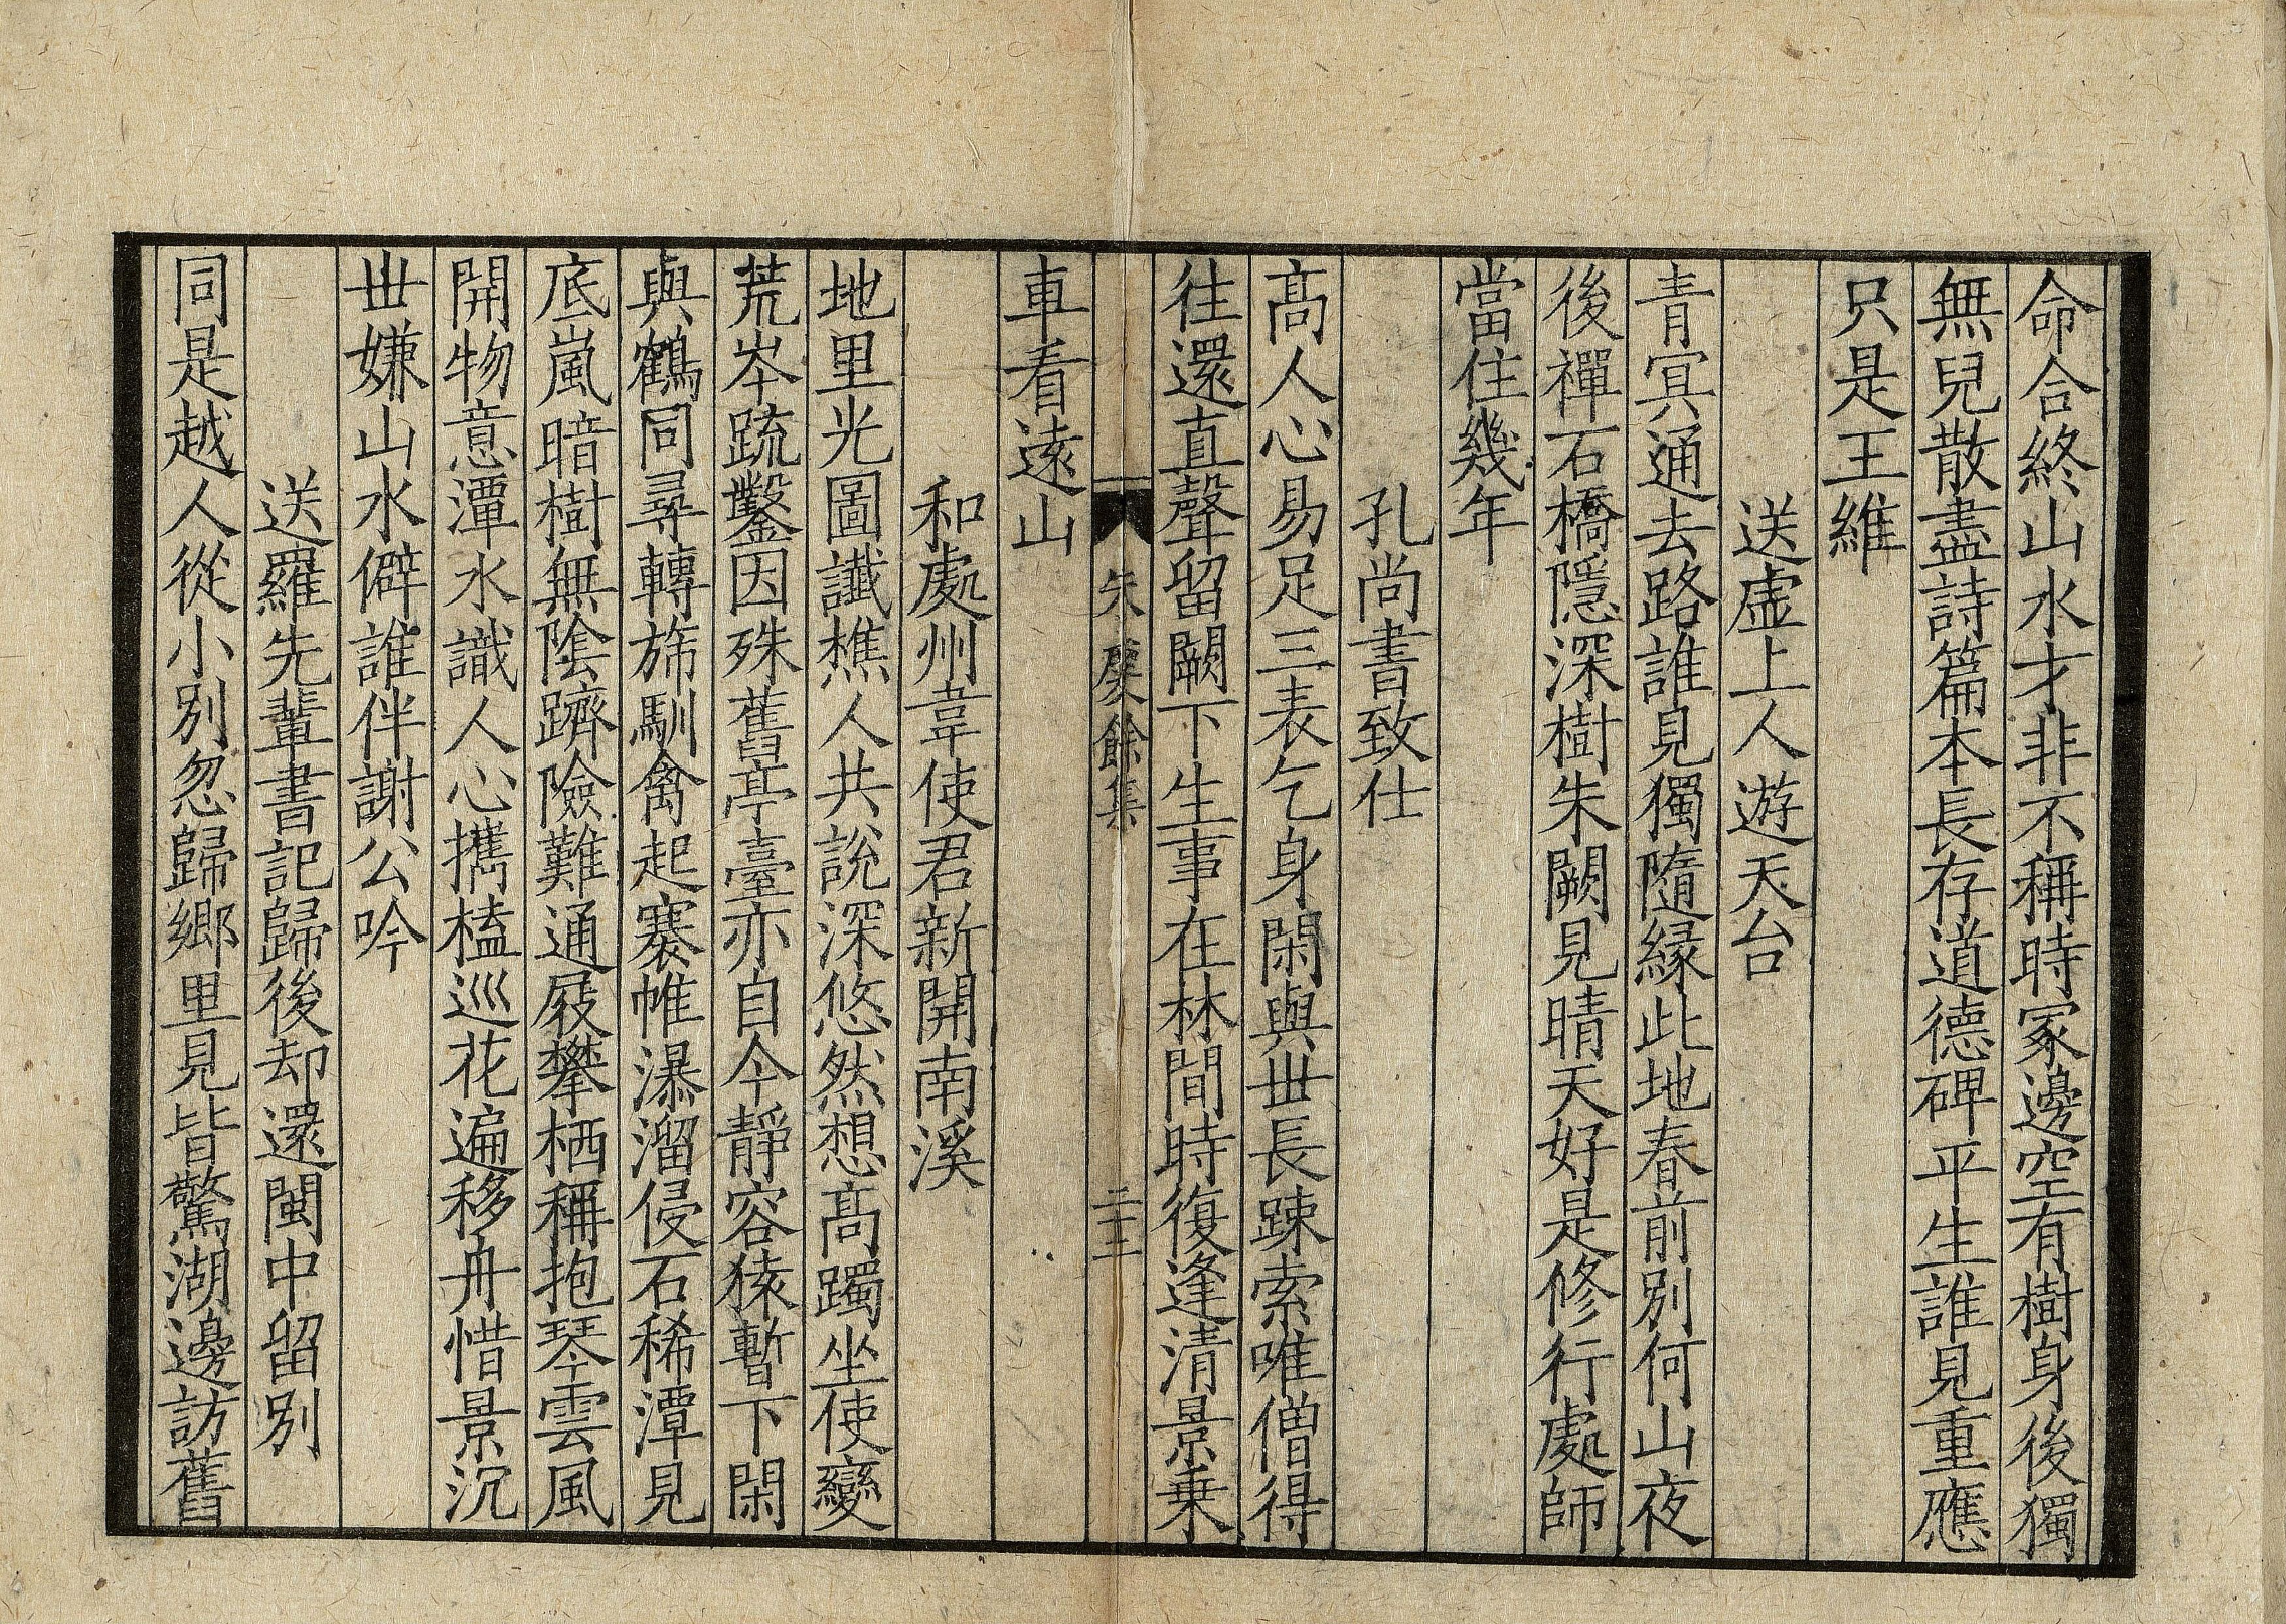 命合終山水才非不稱時冢邊空有樹身後獨
無兒散盡詩篇本長存道德碑平生誰見重應
只是王維
送虛上人遊天台
青冥通去路誰見獨隨緣此地春前別何山夜
後禪石橋隱深樹朱闕見晴天好是修行處師
當住幾年
孔尚書致仕
高人心易足三表乞身閑與世長踈索唯僧得
往還直聲留闕下生事在林間時復逢清景乗
車看遠山
朱慶餘集
二十三
和處州韋使君新開南溪
地里光圖讖樵人共說深悠然想高躅坐使變
荒岑疏鑿因殊舊亭臺亦自今靜容猿暫下閑
與鶴同尋轉斾馴禽起褰帷瀑溜侵石稀潭見
底嵐暗樹無陰躋險難通屐攀栖稱抱琴雲風
開物意潭水識人心携榼巡花遍移舟惜景沉
世嫌山水僻誰伴謝公吟
送羅先輩書記歸後却還閩中留別
同是越人從小別忽歸鄉里見皆驚湖邊訪舊